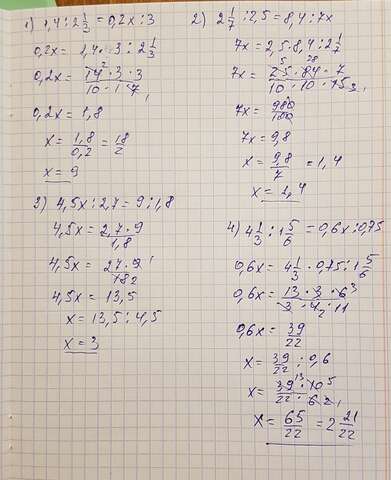 1) 1,4 : 2 1/3 = 0,2x : 3
0,2x = 1,4 · 3 : 2 1/3
0,2x = 14² · 3 · 3 / 10 · 1 · 7₁
0,2x = 1,8
x = 1,8/0,2 = 18/2
x = 9
2) 2 1/7 : 2,5 = 8,4 : 7x
7x = 2,5 · 8,4 : 2 1/7
7x = 25⁵ · 84²⁸ · 7 / 10 · 10 · 15₃
7x = 980/100
7x = 9,8
x = 9,8/7 = 1,4
x = 1,4
3) 4,5x : 2,7 = 9 : 1,8
4,5x = 2,7 · 9 / 1,8
4,5x = 27 · 9¹ / 18 2
4,5x = 13,5
x = 13,5 : 4,5
x = 3
4) 4 1/3 : 1 5/6 = 0,6x : 0,75
0,6x = 4 1/3 · 0,75 : 1 5/6
0,6x = 13 · 3 · 6³ / 3 · 4₂ · 11
0,6x = 39/22
x = 39/22 : 0,6
x = 39¹³ · 10⁵ / 22 · 6 2₁
x = 65/22 = 2 21/22